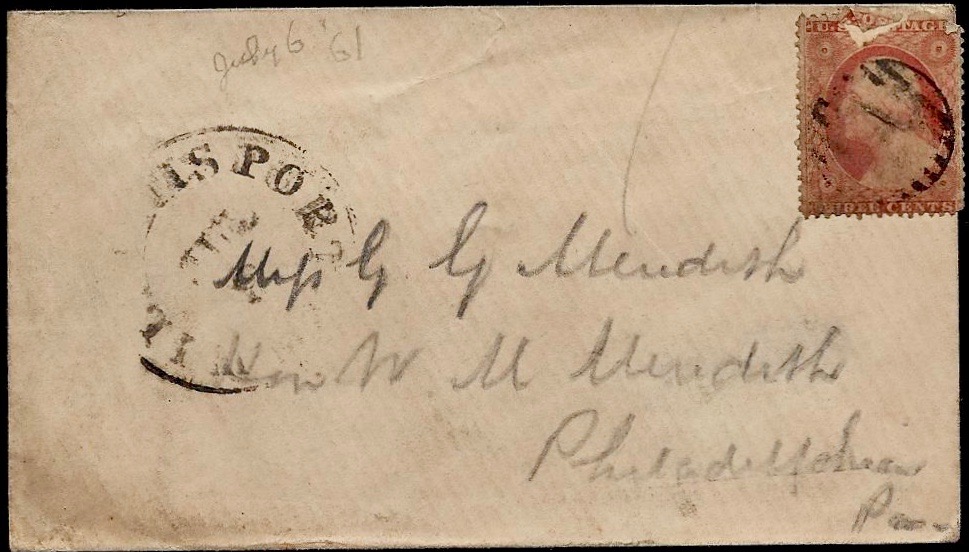 July 6 '61
U.S. POSTAGE
THREE CENTS
MSPORT
Miss G G Meredith
Hon W M Meredith
Philadelphia
Pa